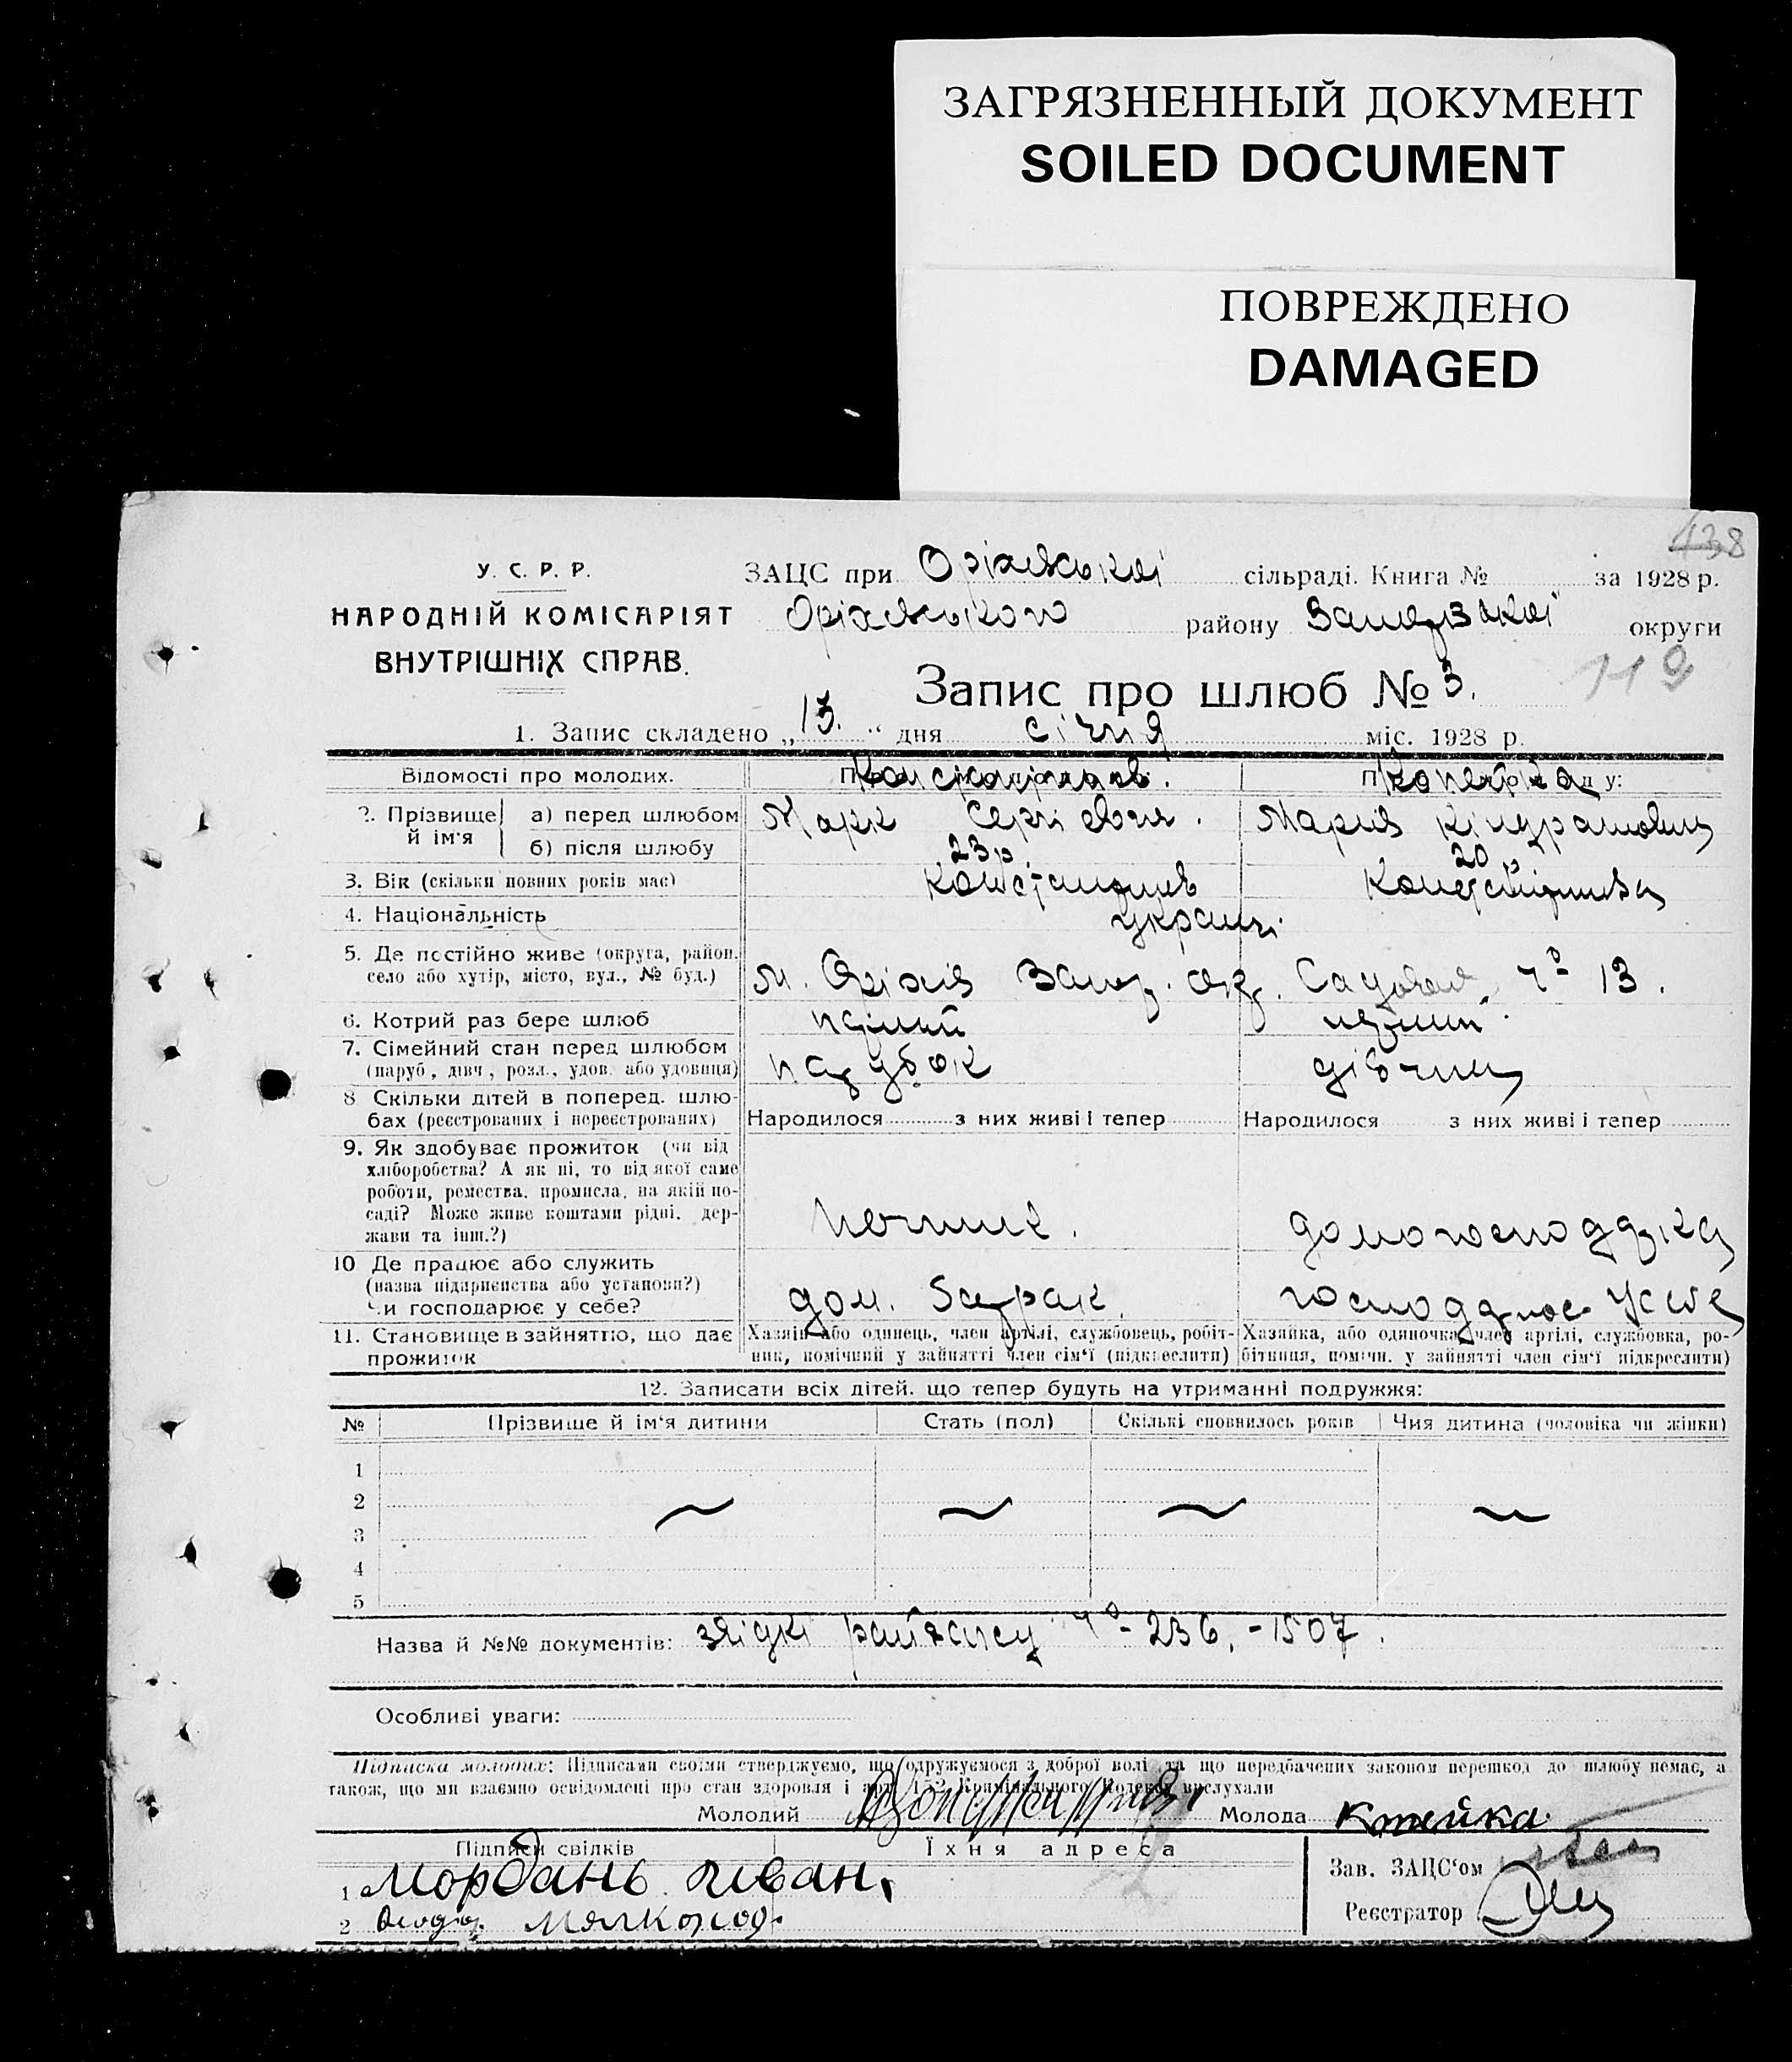 ЗАГРЯЗНЕННЫЙ ДОКУМЕНТ
SOILED DOCUMENT
ПОВРЕЖДЕНО
DAMAGED
438
У. С. Р. Р.
НАРОДНІЙ КОМІСАРІЯТ
ВНУТРІШНІХ СПРАВ.
ЗАЦС при Оріхівської сільраді. Книга № за 1928 р.
Оріхівського району Запорізької округи
119
Запис про шлюб № 3.
1. Запис складено „13.“ дня січня міс. 1928 р.
Відомості про молодих. Константинов. Копейка
2. Прізвище й ім'я
а) перед шлюбом Марк Сергієвич. Мария Кіндратовна
б) після шлюбу 23 р. 20 р
3. Вік (скільки повних років має) Константинов Константинова
4. Національність україн.
5. Де постійно живе (округа, район, село або хутір, місто, вул., № буд.) м. Оріхів Запор. окр. Садовая, № 13.
6. Котрий раз бере шлюб перший перший
7. Сімейний стан перед шлюбом (паруб., дівч., розл., удов. або удовиця) парубок дівчина
8 Скільки дітей в поперед. шлюбах (реєстрованих і нереєстрованих) Народилося з них живі і тепер Народилося з них живі і тепер
9. Як здобуває прожиток (чи від
хліборобства? А як ні, то від якої саме
роботи, ремества, промисла, на якій по-
саді? Може живе коштами рідні, дер-
жави та інш.?) печник. домогосподарка
10 Де працює або служить
(назва підприємства або установи?)
Чи господарює у себе? дом. господарює у себе
11. Становище в зайняттю, що дає прожиток
Хазяїн або одинець, член артілі, службовець, робіт-
ник, помічний у зайнятті член сім'ї (підкреслити)
Хазяйка, або одиночка, член артілі, службовка, ро-
бітниця, помічн. у зайнятті член сім'ї підкреслити)
12. Записати всіх дітей, що тепер будуть на утриманні подружжя:
№ Прізвище й ім'я дитини Стать (пол) Скількі сповнилось років Чия дитина (чоловіка чи жінки)
1
2
3
4
5
Назва й №№ документів: № 236, - 1507.
Особливі уваги:
Підписка молодих: Підписами своїми стверджуємо, що одружуємося з доброї волі та що передбачених законом перешкод до шлюбу немає, а
також, що ми взаємно освідомлені про стан здоровля і арт. 152 Крамінального Кодексу вислухали
Молодий Молода Копейка
Підписи свілків Їхня адреса
1 Мордань Иван.
2
Зав. ЗАЦС'ом
Реєстратор